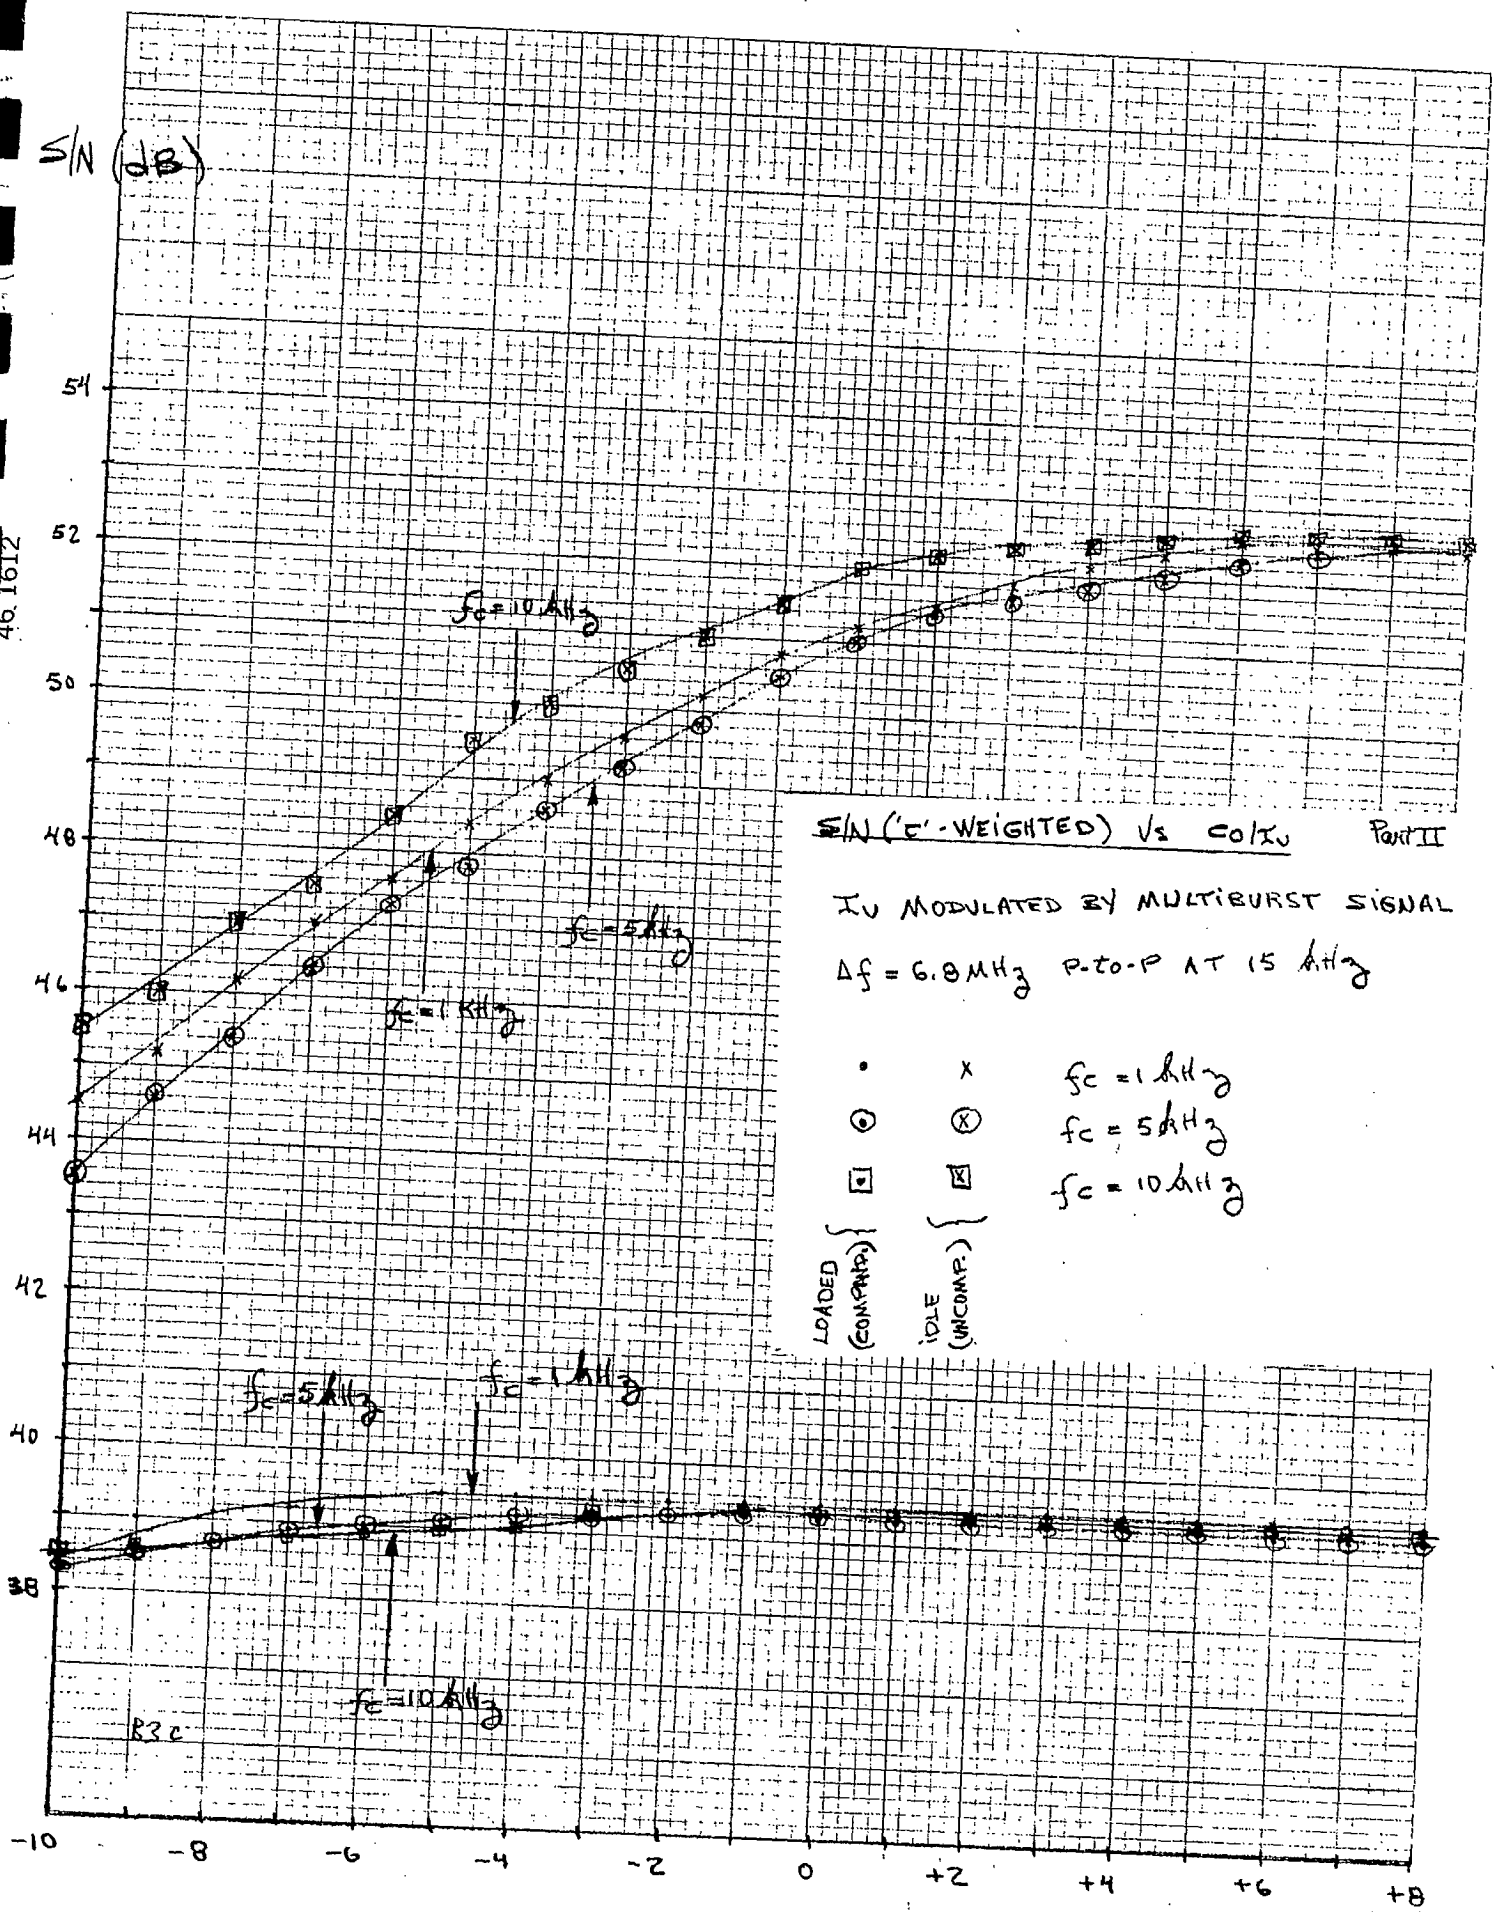 S/N (dB)
46 1612
54
52
50
48
46
44
42
40
38
fc = 10 kHz
fc = 5 kHz
fc = 1 kHz
S/N ('C'-WEIGHTED) Vs CO/IU Part II
IU MODULATED BY MULTIBURST SIGNAL
Δf = 6.8 MHz P-to-P AT 15 kHz
• x fc = 1 kHz
fc = 5 kHz
fc = 10 kHz
LOADED
(COMPAND.)
IDLE
(UNCOMP.)
fc = 5 kHz
fc = 1 kHz
fc = 10 kHz
B3C
-10 -8 -6 -4 -2 0 +2 +4 +6 +8